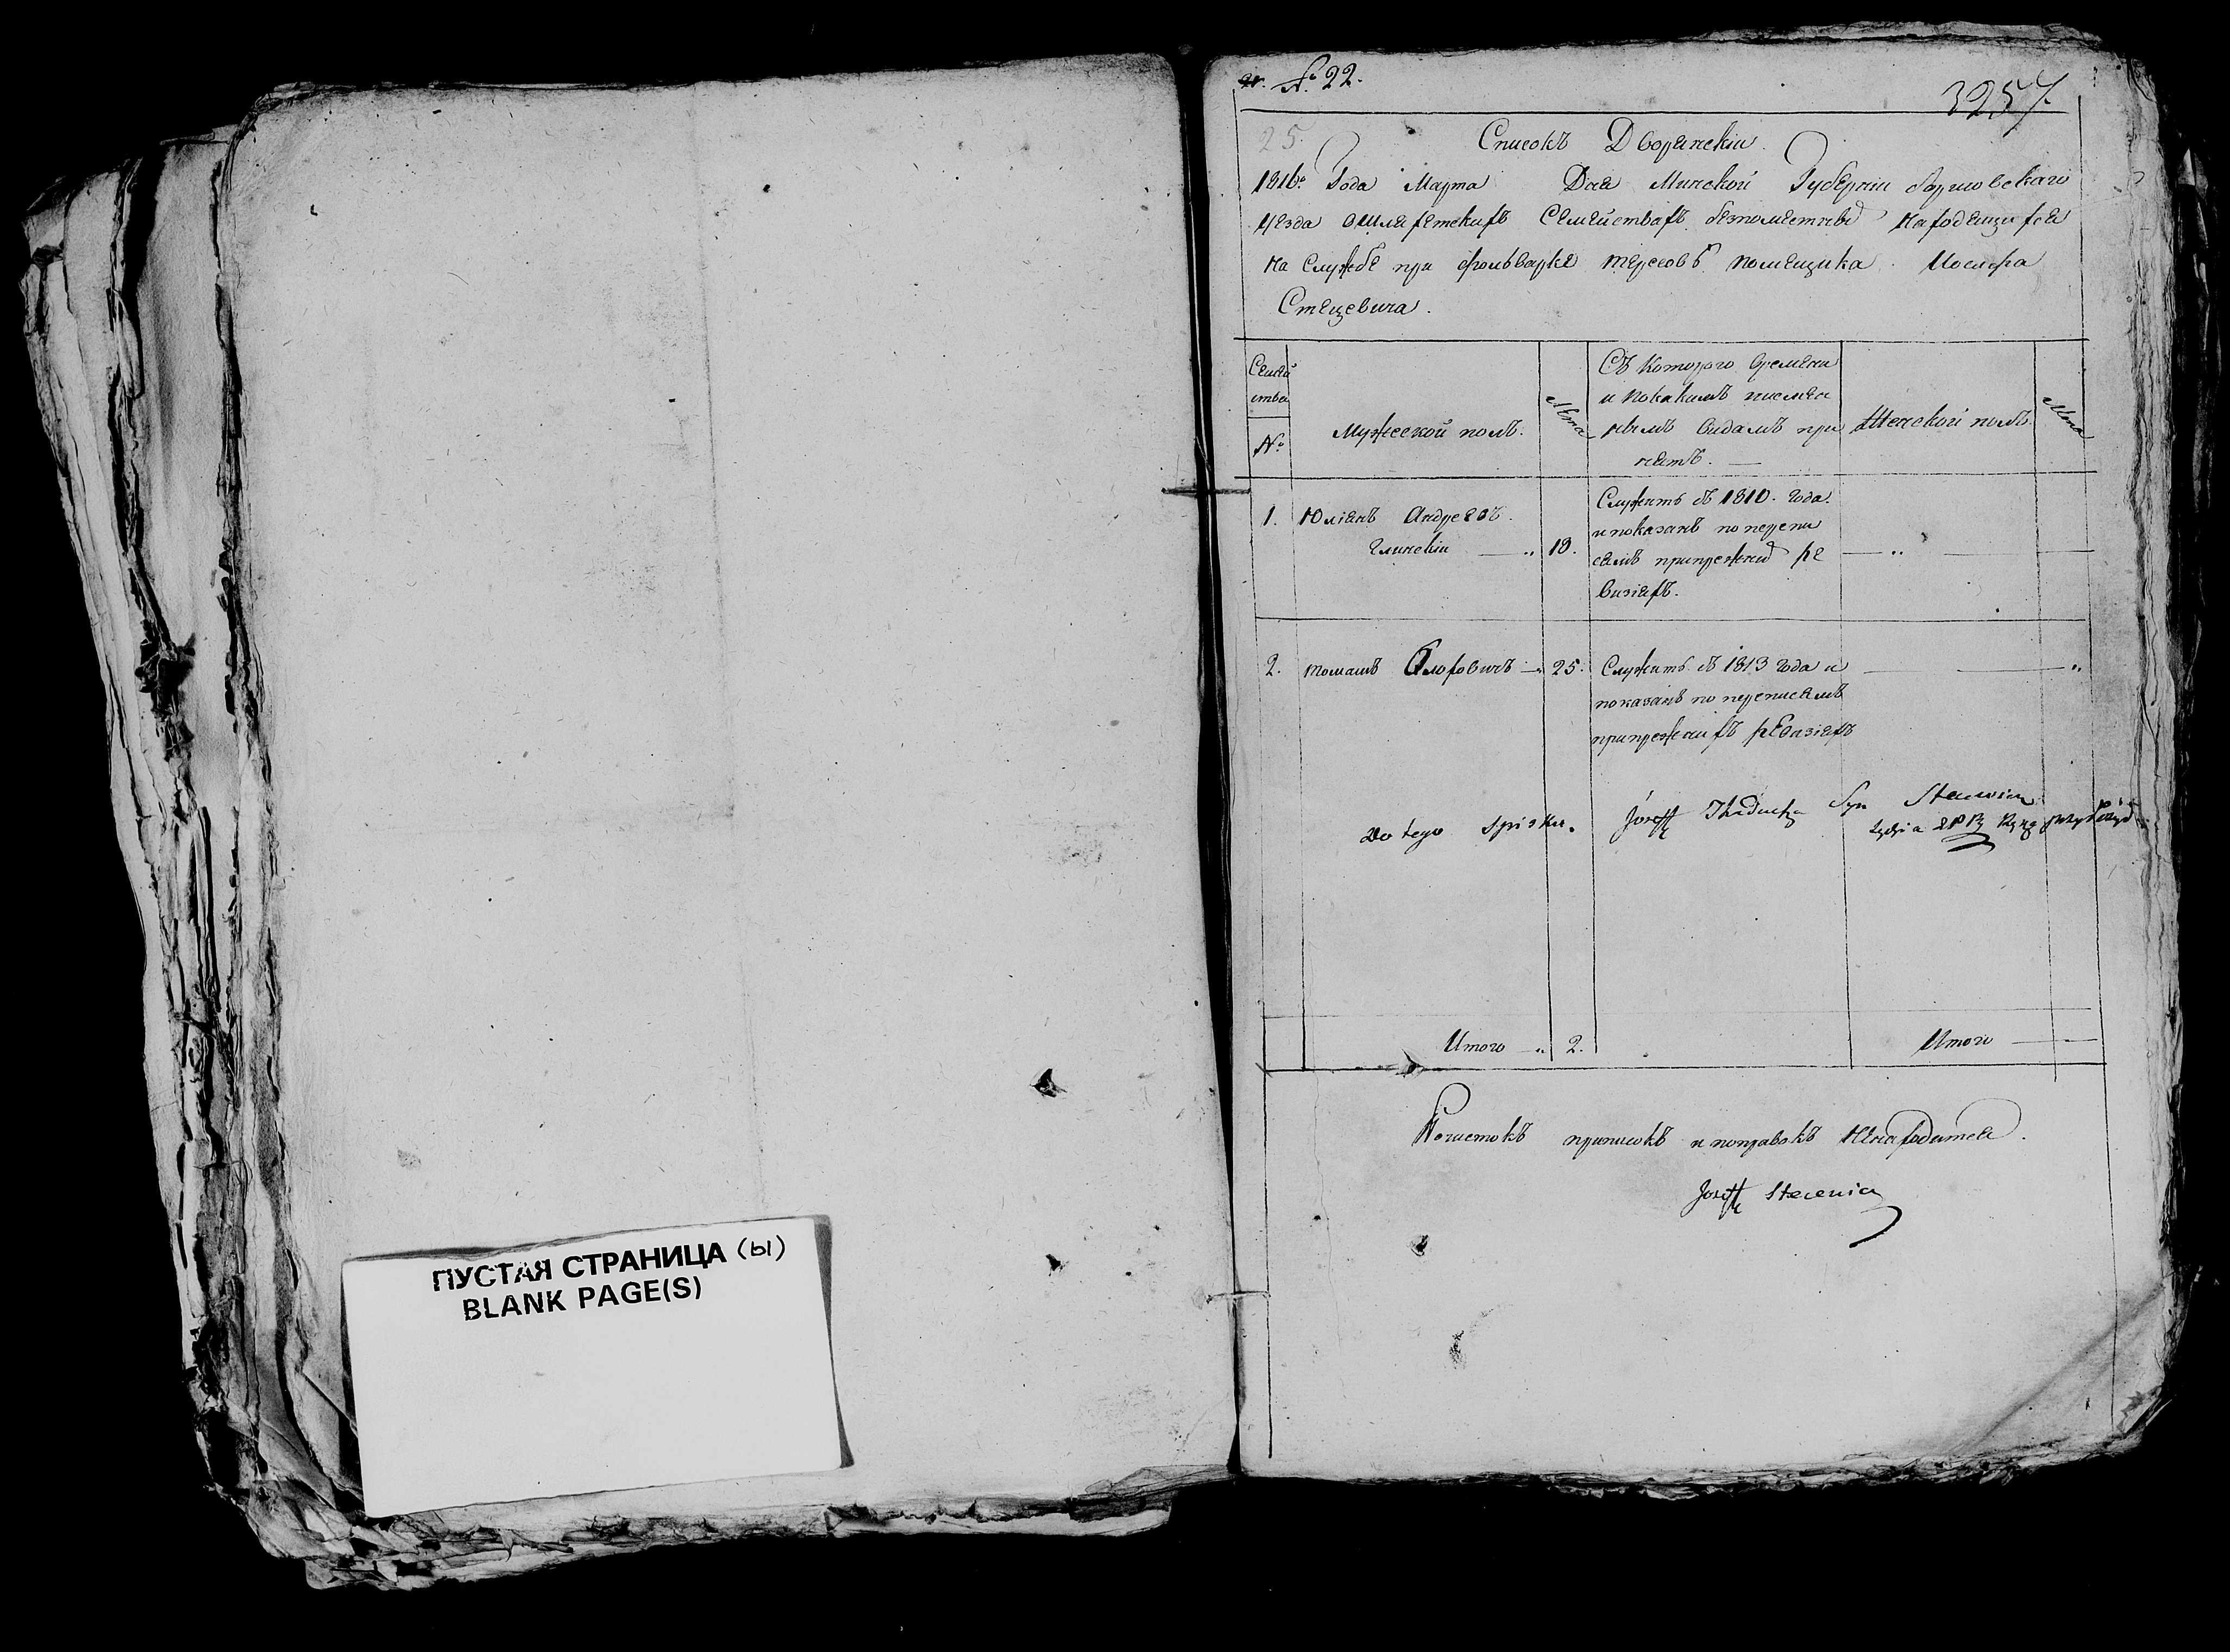 ПУСТАЯ СТРАНИЦА (ы)
BLANK PAGE(S)
№ 22.
3257.
25.
Списокъ Дворянскiи.
1816го Года Марта Дня Минской Губерніи Борисовскаго
уезда о шляхетскихъ Семействахъ безпоместных находящихся
на Службе при фольварке помещика Иосифа
Стецевича.
Семей
ства
№
Мужеской полъ.
Лета
Съ которого времени
и по какимъ письмен
нымъ видамъ при
нятъ.
Женской полъ
Лета
1. Юліанъ Андреевъ.
Глинскiи 18.
Служитъ съ 1810. года.
и показанъ по перепи
сямъ припрежних ре
визіяхъ.
2. Томашъ 25.
Служитъ съ 1813 года и
показанъ по переписямъ
припрежнихъ ревизіяхъ
Do tego spisku. Józeff Thadeusza Syn Stecewicz
ręką
Итого 2.
Итого
Почистокъ приписокъ и поправокъ ненаходится.
Jozeff Stecewicz